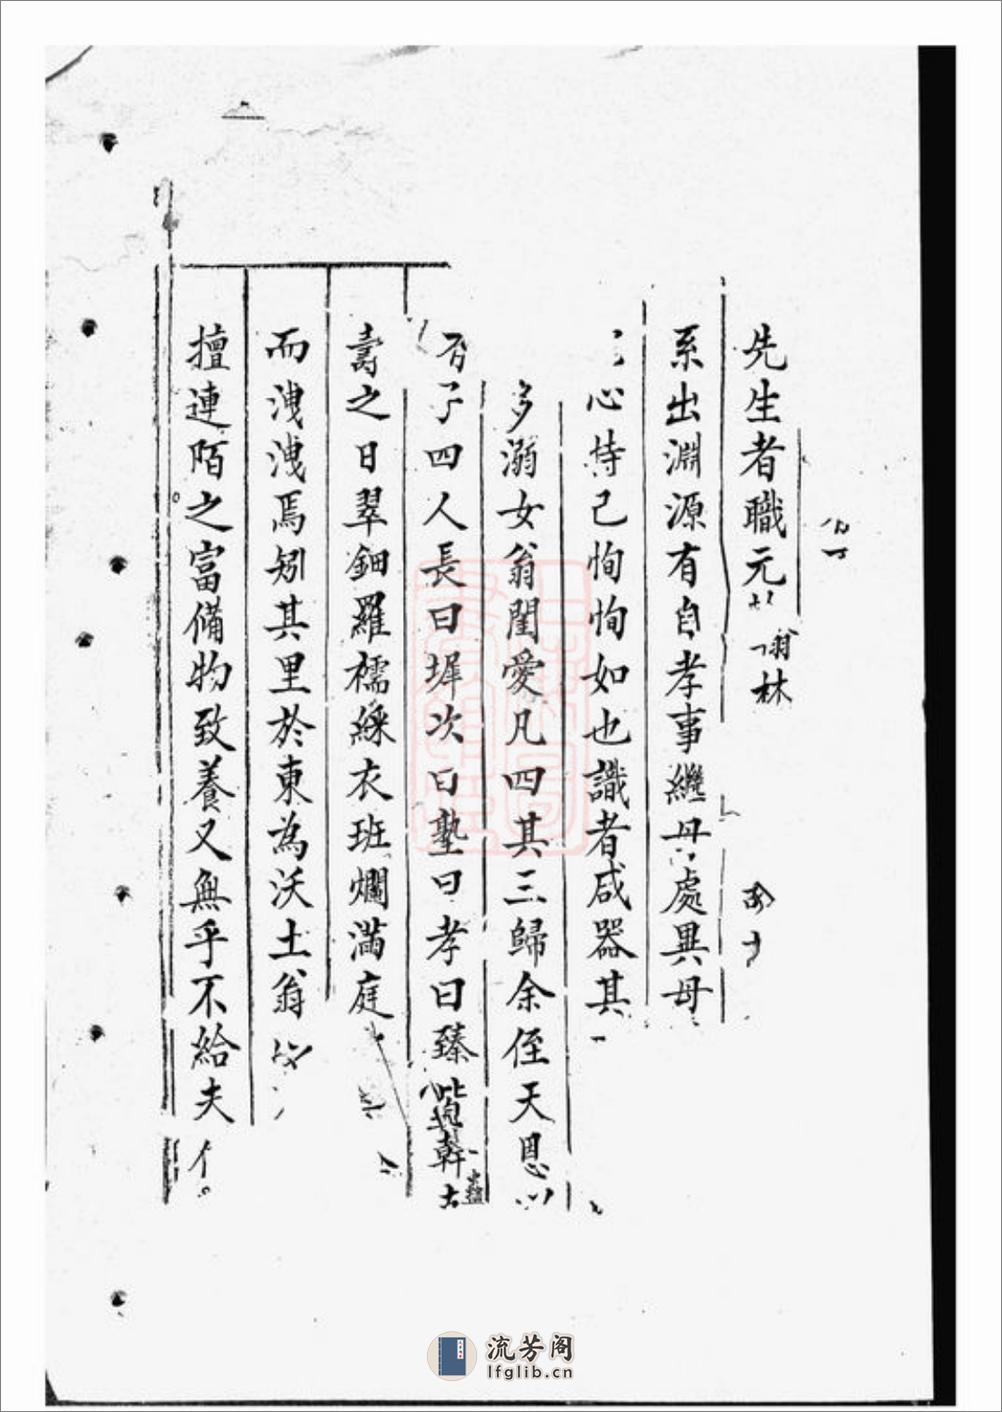 先生者職元翁林
系出淵源有自孝事繼母處異母
心持己恂恂如也識者咸器其
多溺女翁閨愛凡四其三歸余侄天恩
子四人長曰墀次曰塾曰孝曰臻皆幹
壽之日翠鈿羅襦綵衣班斕滿庭
而洩洩焉矧其里於東為沃土翁
擅連陌之富備物致養又無乎不給夫
流芳阁
lfglib.cn